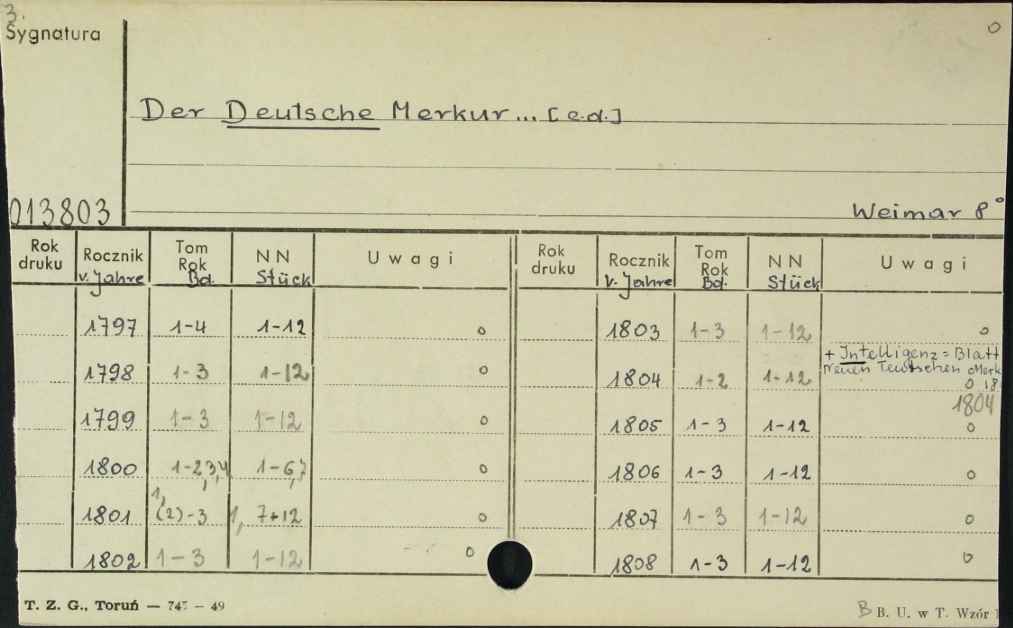 3.
Sygnatura
o
Der Deutsche Merkur... [c.d.]
013803
Weimar 8°
Rok druku Rocznik v. Jahre Tom Rok Bd. NN Stück Uwagi Rok druku Rocznik v. Jahre Tom Rok Bd. NN Stück Uwagi
1797 1-4 1-12 o 1803 1-3 1-12 o
+ Intelligenz=Blatt
Neuen Teutschen Merk
1798 1-3 1-12 o 1804 1-2 1-12 o 18
1804
1799 1-3 1-12 o 1805 1-3 1-12 o
1800 1-2,3,4 1-6,7 o 1806 1-3 1-12 o
1801 1, (2)-3 1, 7+12 o 1807 1-3 1-12 o
1802 1-3 1-12 o 1808 1-3 1-12 o
T. Z. G., Toruń — 747 – 49
B B. U. w T. Wzór 1